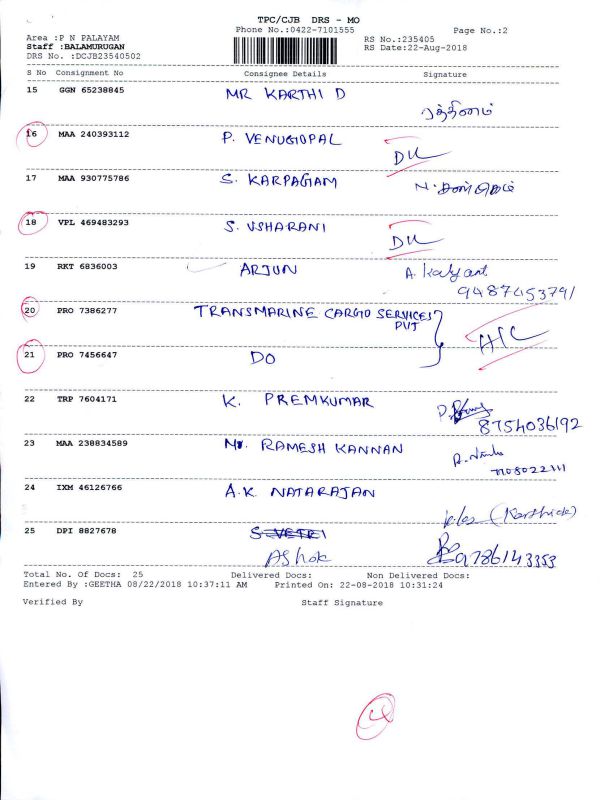 TPC/CJB DRS - MO
Phone No.:0422-7101555 Page No.:2
Area :P N PALAYAM RS No.:235405
Staff :BALAMURUGAN RS Date:22-Aug-2018
DRS No. :DCJB23540502
S No Consignment No Consignee Details Signature
15 GGN 65238845 MR KARTHI D
ரத்தினம்
16 MAA 240393112 P. VENUGOPAL DL
17 MAA 930775786 S. KARPAGAM
18 VPL 469483293 S. USHARANI DL
19 RKT 6836003 ARJUN A. Kalyani
9487453791
20 PRO 7386277 TRANSMARINE CARGO SERVICES
PVT
21 PRO 7456647 DO
22 TRP 7604171 K. PREMKUMAR
8754036192
23 MAA 238834589 Mr. RAMESH KANNAN
24 IXM 46126766 A.K. NATARAJAN
(Karthick)
25 DPI 8827678 S VETRI
Ashok 9786143353
Total No. Of Docs: 25 Delivered Docs: Non Delivered Docs:
Entered By :GEETHA 08/22/2018 10:37:11 AM Printed On: 22-08-2018 10:31:24
Verified By Staff Signature
4